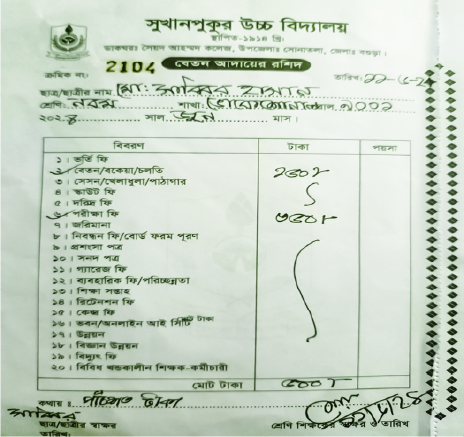 সুখানপুকুর উচ্চ বিদ্যালয়
স্থাপিত-১৯১৪ খ্রি:
ডাকঘরঃ সৈয়দ আহম্মদ কলেজ, উপজেলাঃ সোনাতলা, জেলাঃ বগুড়া।
ক্রমিক নং: 2104 বেতন আদায়ের রশিদ তারিখ:
ছাত্র/ছাত্রীর নাম মো: সাব্বির হাসান
শ্রেণি: নবম শাখা:
২০২৪ সাল জুন মাস।
বিবরণ টাকা পয়সা
১। ভর্তি ফি
২। বেতন/বকেয়া/চলতি ২০০৲
৩। সেসন/খেলাধুলা/পাঠাগার
৪। স্কাউট ফি
৫। দরিদ্র ফি
৬। পরীক্ষা ফি ৩০০৲
৭। জরিমানা
৮। নিবন্ধন ফি/বোর্ড ফরম পূরণ
৯। প্রশংসা পত্র
১০। সনদ পত্র
১১। গ্যারেজ ফি
১২। ব্যবহারিক ফি/পরিচ্ছন্নতা
১৩। শিক্ষা সপ্তাহ
১৪। রিটেনশন ফি
১৫। কেন্দ্র ফি
১৬। ভবন/অনলাইন আই সিটি টাকা
১৭। উন্নয়ন
১৮। বিজ্ঞান উন্নয়ন
১৯। বিদ্যুৎ ফি
২০। বিবিধ খন্ডকালীন শিক্ষক-কর্মচারী
মোট টাকা ৫০০৲
কথায়ঃ পাঁচশত টাকা
সাব্বির
ছাত্র/ছাত্রীর স্বাক্ষর শ্রেণি শিক্ষকের স্বাক্ষর ও তারিখ
তারিখ: